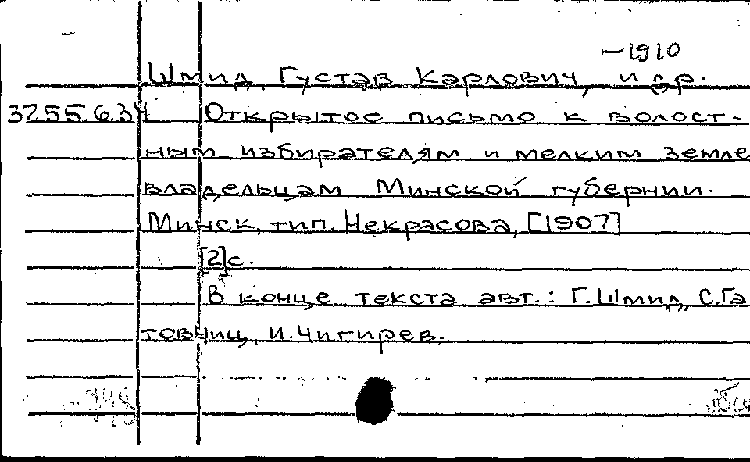 —1910
Шмид, Густав Карлович, и др.
3255.634 Открытое письмо к волост-
ным избирателям и мелким земле
владельцам Минской губернии.
Минск, тип. Некрасова, [1907]
[2]с.
В конце текста авт.: Г. Шмид, С. Га
товчиц, И. Чигирев.